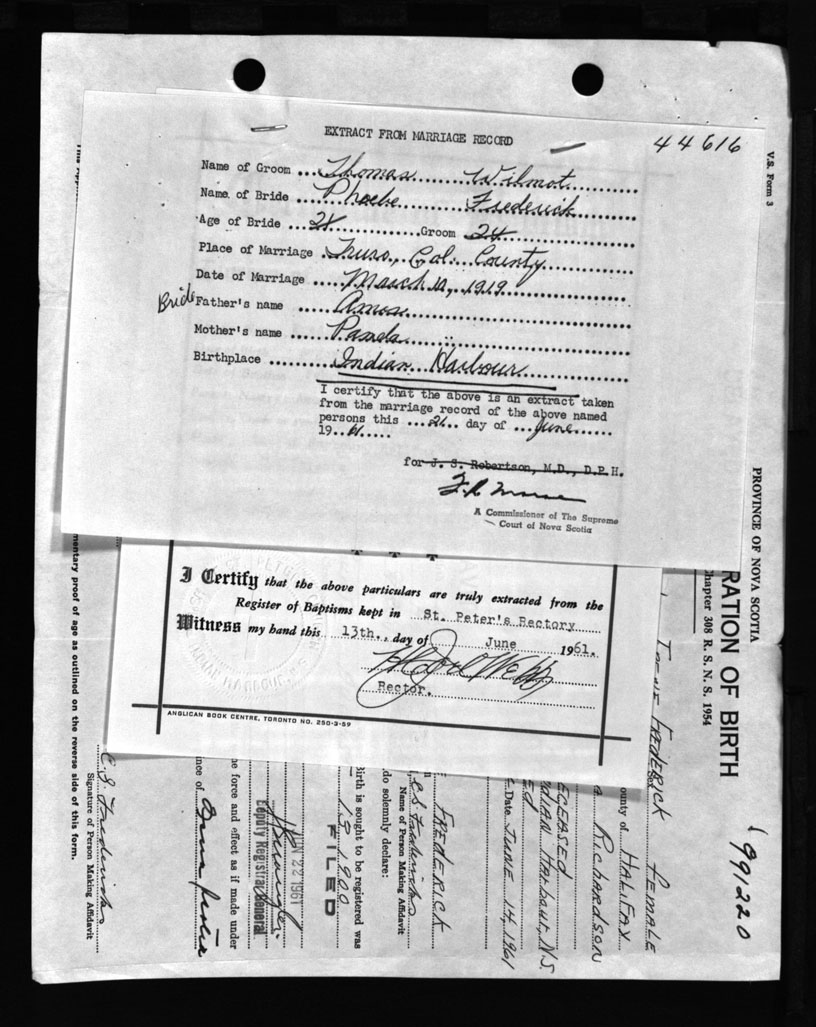 EXTRACT FROM MARRIAGE RECORD
44616
Name of Groom ... Thomas Wilmot
Name of Bride ... Phoebe Frederick
Age of Bride ... 21 ... Groom 24
Place of Marriage . Truro, Col. County
Date of Marriage .... March 12, 1919
Bride Father's name .... Amos
Mother's name ..... Pamela
Birthplace ......... Indian Harbour
I certify that the above is an extract taken
from the marriage record of the above named
persons this ... 21 .. day of ... June ......
19 .. 61 .....
for J. S. Robertson, M.D., D.P.H.
A Commissioner of The Supreme
Court of Nova Scotia
I Certify that the above particulars are truly extracted from the
Register of Baptisms kept in St. Peter's Rectory
Witness my hand this 13th. day of June 1961.
Rector.
ANGLICAN BOOK CENTRE, TORONTO NO. 250-3-59
V.S. Form 3
PROVINCE OF NOVA SCOTIA
RATION OF BIRTH
hapter 308 R. S. N. S. 1954
991220
FREDERICK female
ounty of HALIFAX
a RICHARDSON
ECEASED
NDIAN HARBOUR, N.S.
Date JUNE 14, 1961
FREDERICK
C.S. Frederick
Name of Person Making Affidavit
do solemnly declare:
Birth is sought to be registered was
19 1900
FILED
JUN 22 1961
Deputy Registrar General
he force and effect as if made under
nce of
C. S. Frederick
Signature of Person Making Affidavit
mentary proof of age as outlined on the reverse side of this form.